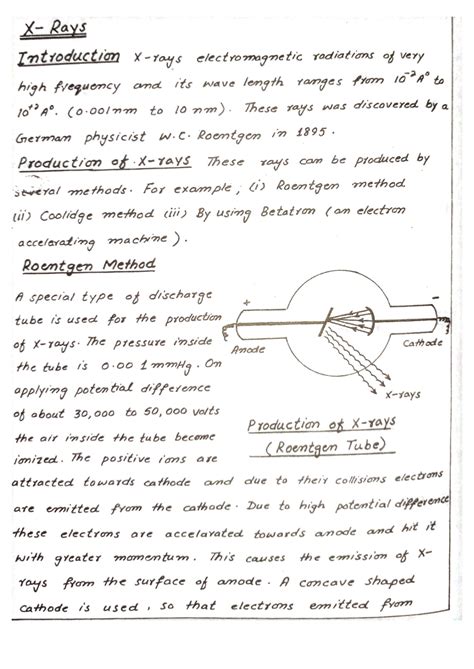 X-Rays
Introduction X-rays electromagnetic radiations of very
high frequency and its wave length ranges from 10⁻² A° to
10⁺² A°. (0.001nm to 10 nm). These rays was discovered by a
German physicist W.C. Roentgen in 1895.
Production of X-rays These rays can be produced by
several methods. For example, (i) Roentgen method
(ii) Coolidge method (iii) By using Betatron (an electron
accelerating machine).
Roentgen Method
A special type of discharge
tube is used for the production
of X-rays. The pressure inside
the tube is 0.00 1 mmHg. On
applying potential difference
of about 30,000 to 50,000 volts
the air inside the tube become
ionized. The positive ions are
+
-
Anode
Cathode
X-rays
Production of X-rays
(Roentgen Tube)
attracted towards cathode and due to their collisions electrons
are emitted from the cathode. Due to high potential difference
these electrons are accelarated towards anode and hit it
with greater momentum. This causes the emission of X-
rays from the surface of anode. A concave shaped
cathode is used, so that electrons emitted from